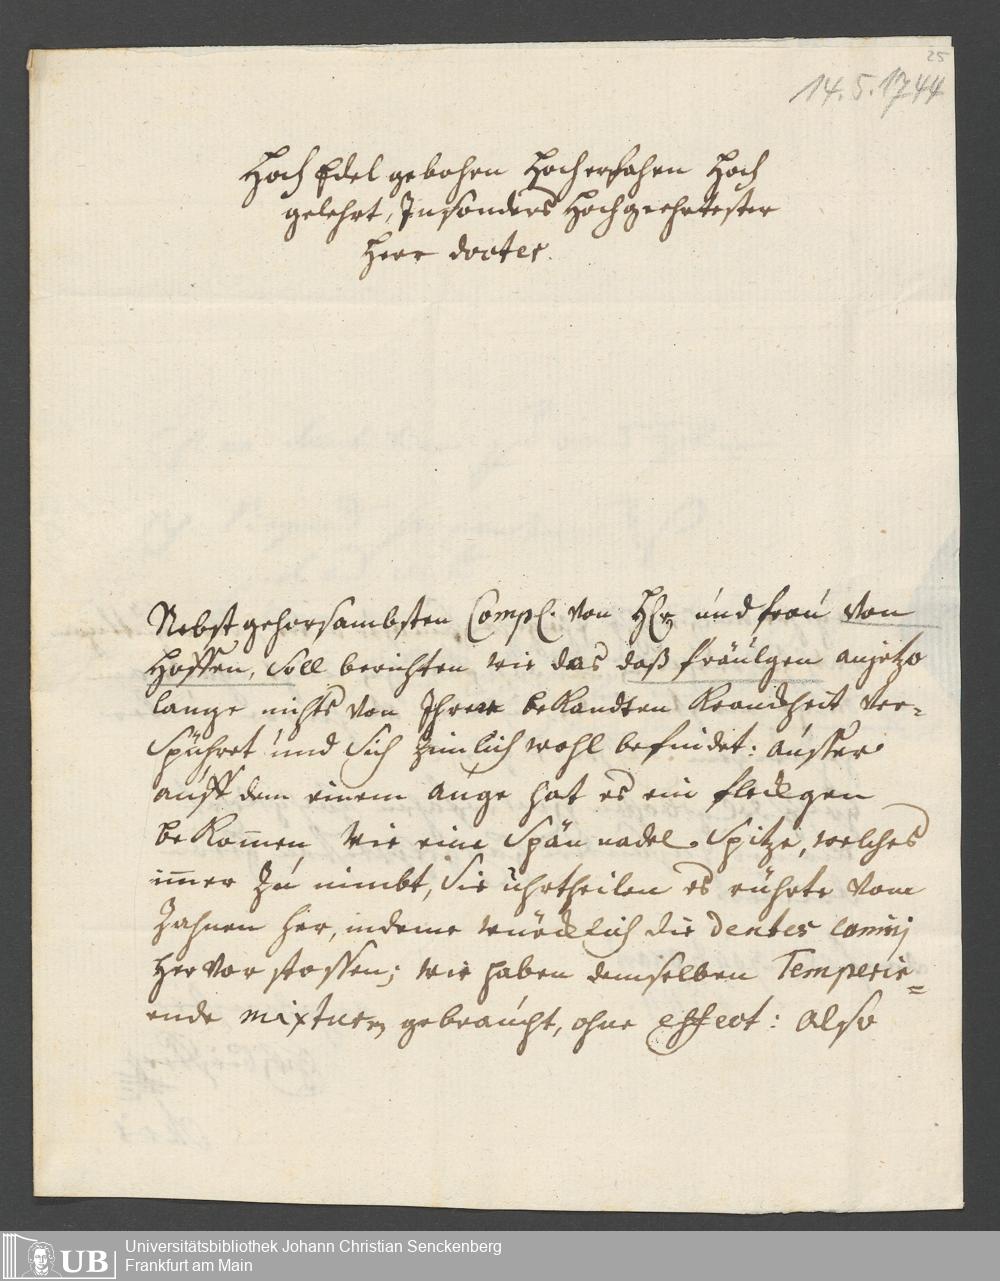 25
14.5.1744
Hoch Edel gebohrn Hocherfahrn Hoch
gelehrt, Insonders Hochgeehrtester
Herr docter.
Nebst gehorsambsten Compl. von und frau von
Hossen, soll berichten wie das daß fräulgen anjetzo
lange nichts von Ihrer bekandten Kranckheit ver-
spühret und sich zimlich wohl befindet: ausser
auff dem einem auge hat es ein fleckgen
bekom̅en wie eine Spän nadel Spitze, welches
im̅er zu nimbt, Sie uhrtheilen es rührte vom
Zahnen her, indeme würcklich die dentes canini
hervor stossen; wir haben demselben Temperir=
ende mixturen gebraucht, ohne effect: also
UB
Universitätsbibliothek Johann Christian Senckenberg
Frankfurt am Main